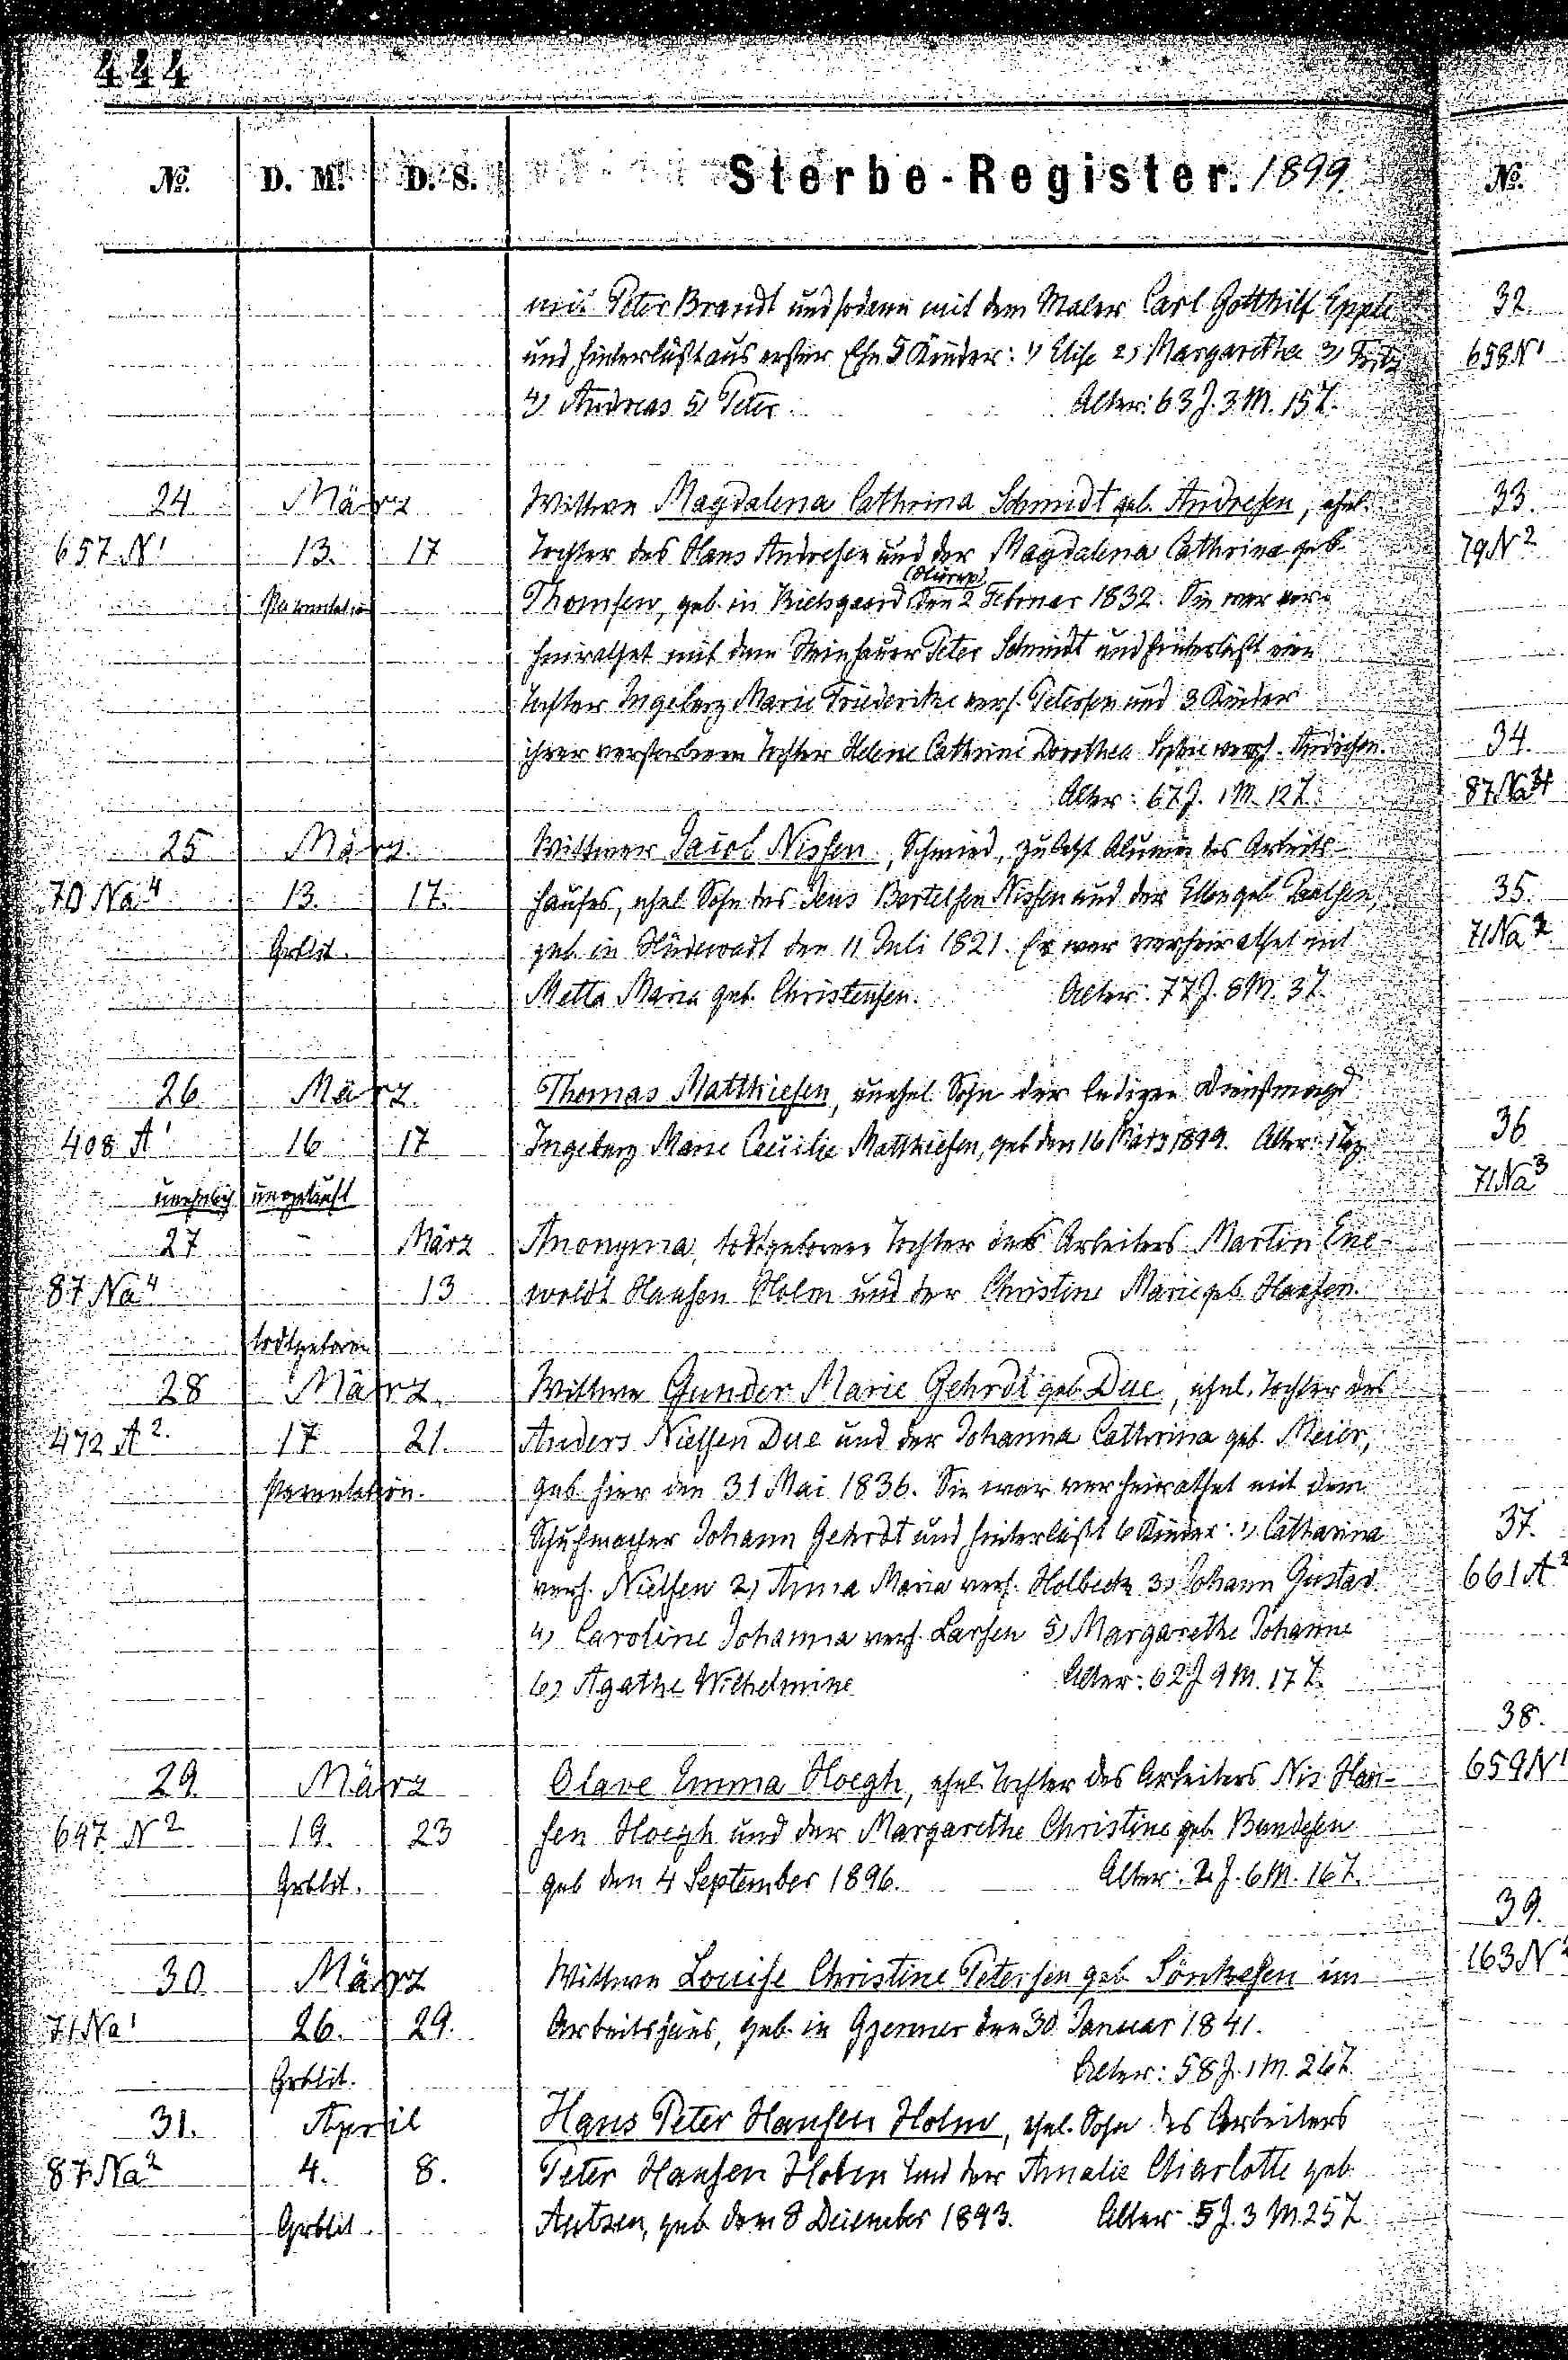 444
No. D. M. D. S. Sterbe-Register. 1899 No.
mit Peter Brandt und sodann mit dem Maler Carl Gotthilf Epple
und hinterläßt aus erster Ehe 5 Kinder: 1) Elise 2) Margarethe 3) Fritz
4) Andreas 5) Peter Alter: 63 J. 3 M. 15 T.
24 März Wittwe Magdalena Cathrina Schmidt geb. Andresen, ehel.
657 N 1 13. 17 Tochter des Hans Andresen und der Magdalena Cathrina geb.
(Hürup)
Parentation Thomsen, geb. in Rielsgaard den 2 Februar 1832. Sie war ver-
heirathet mit dem Steinhauer Peter Schmidt und hinterläßt eine
Tochter Ingeborg Marie Friederike verh. Petersen und 3 Kinder
ihrer verstorbenen Tochter Helene Cathrine Dorothea Sophie verh.
Alter: 67 J. 1 M. 12 T.
25 März Wittwer Jacob Nissen, Schmied, zuletzt Alumne des Arbeits-
70 Na 4 13. 17. hauses, ehel. Sohn des Jens Bertelsen Nissen und der Ellen geb. Paulsen,
Grbbt. geb. in Hüdewadt den 11 Juli 1821. Er war verheirathet mit
Metta Maria geb. Christensen. Alter: 77 J. 8 M. 3 T.
26 März. Thomas Matthiesen, unehel. Sohn der ledigen Dienstmagd
408 A 1 16 17 Ingeborg Marie Caecilie Matthiesen, geb. den 16 März 1899. Alter: 1 Tag
unehelich ungetauft
27 - März Anonyma, todtgeborene Tochter des Arbeiters Martin Ene-
87 Na 4 13 woldt Hansen Holm und der Christine Marie geb. Hansen.
todtgeboren
28 März. Wittwe Gunder Marie Gehrdt geb. Due, ehel. Tochter des
472 A 2. 17 21. Anders Nielsen Due und der Johanna Cathrina geb. Meier,
Parentation. geb. hier den 31 Mai 1836. Sie war verheirathet mit dem
Schuhmacher Johann Gehrdt und hinterläßt 6 Kinder: 1) Catharina
verh. Nielsen 2) Anna Maria verh. Holbeck 3) Johann Gustav
4) Caroline Johanna verh. Larsen 5) Margarethe Johanne
6) Agathe Wilhelmine Alter: 62 J 9 M. 17 T.
29. März Olave Emma Hoegh, ehel. Tochter des Arbeiters Nis Han-
647 N 2 19. 23 sen Hoegh und der Margarethe Christine geb. Bundesen
Grbbt. geb den 4 September 1896. Alter: 2 J. 6 M. 16 T.
30 März Wittwe Louise Christine Petersen geb. Sönksen im
71 Na 1 26. 29. Arbeitshaus, geb. in Gjenner den 30 Januar 1841.
Grbbt. Alter: 58 J. 1 M. 26 T.
31. April Hans Peter Hansen Holm, ehel. Sohn des Arbeiters
87 Na 2 4. 8. Peter Hansen Holm und der Amalie Charlotte geb.
Grbbt. geb. den 8 Dezember 1893. Alter 5 J. 3 M. 25 T
32.
658 N 1
33.
79 N 2
34.
87 Na
35.
71 Na 2
36
71 Na 3
37.
661 A 2
38.
659 N 1
39.
163 N